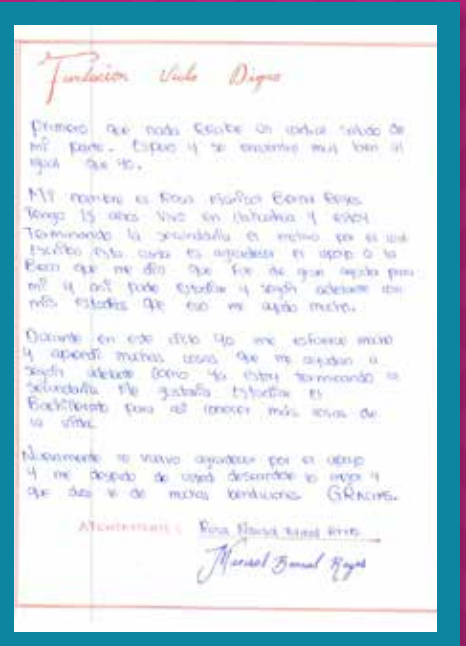 Fundación Vida Digna
Primero que nada Reciba un cordial saludo de
mi parte. Espero y se encuentre muy bien al
igual que yo.
Mi nombre es Rosa Bernal Reyes
Tengo 15 años vivo en y estoy
Terminando la secundaria el motivo por el cual
Escribo esta carta es agradecer el apoyo a la
Beca que me dio que fue de gran ayuda para
mi y así pude estudiar y seguir adelante con
mis estudios que eso me ayudo mucho.
Durante en este ciclo yo me esforce mucho
y aprendí muchas cosas que me ayudan a
seguir adelante como ya estoy terminando la
secundaria Me gustaría Estudiar el
Bachillerato para así conocer más cosas de
la vida.
Nuevamente le vuelvo agradecer por el apoyo
y me despido de usted deseandole lo mejor y
que dios le de muchas bendiciones GRACIAS.
ATENTAMENTE: Rosa
Marisol Bernal Reyes